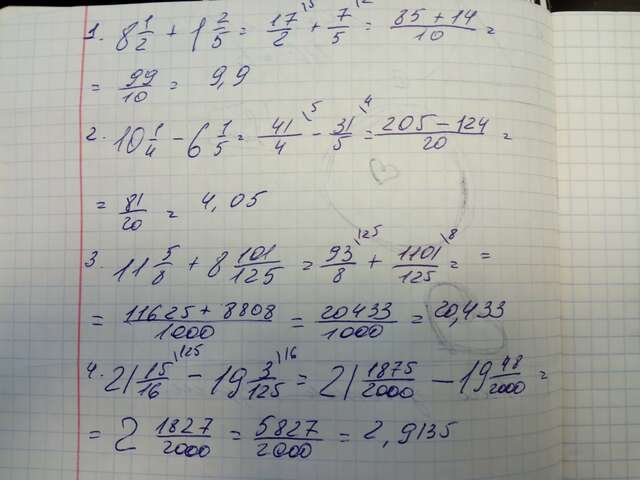 1. 8 1/2 + 1 2/5 = 17/2 \5 + 7/5 \2 = 85+14/10 =
= 99/10 = 9,9
2. 10 1/4 - 6 1/5 = 41/4 \5 - 31/5 \4 = 205-124/20 =
= 81/20 = 4,05
3. 11 5/8 + 8 101/125 = 93/8 \125 + 1101/125 \8 = =
= 11625+8808/1000 = 20433/1000 = 20,433
4. 21 15/16 \125 - 19 3/125 \16 = 21 1875/2000 - 19 48/2000 =
= 2 1827/2000 = 5827/2000 = 2,9135